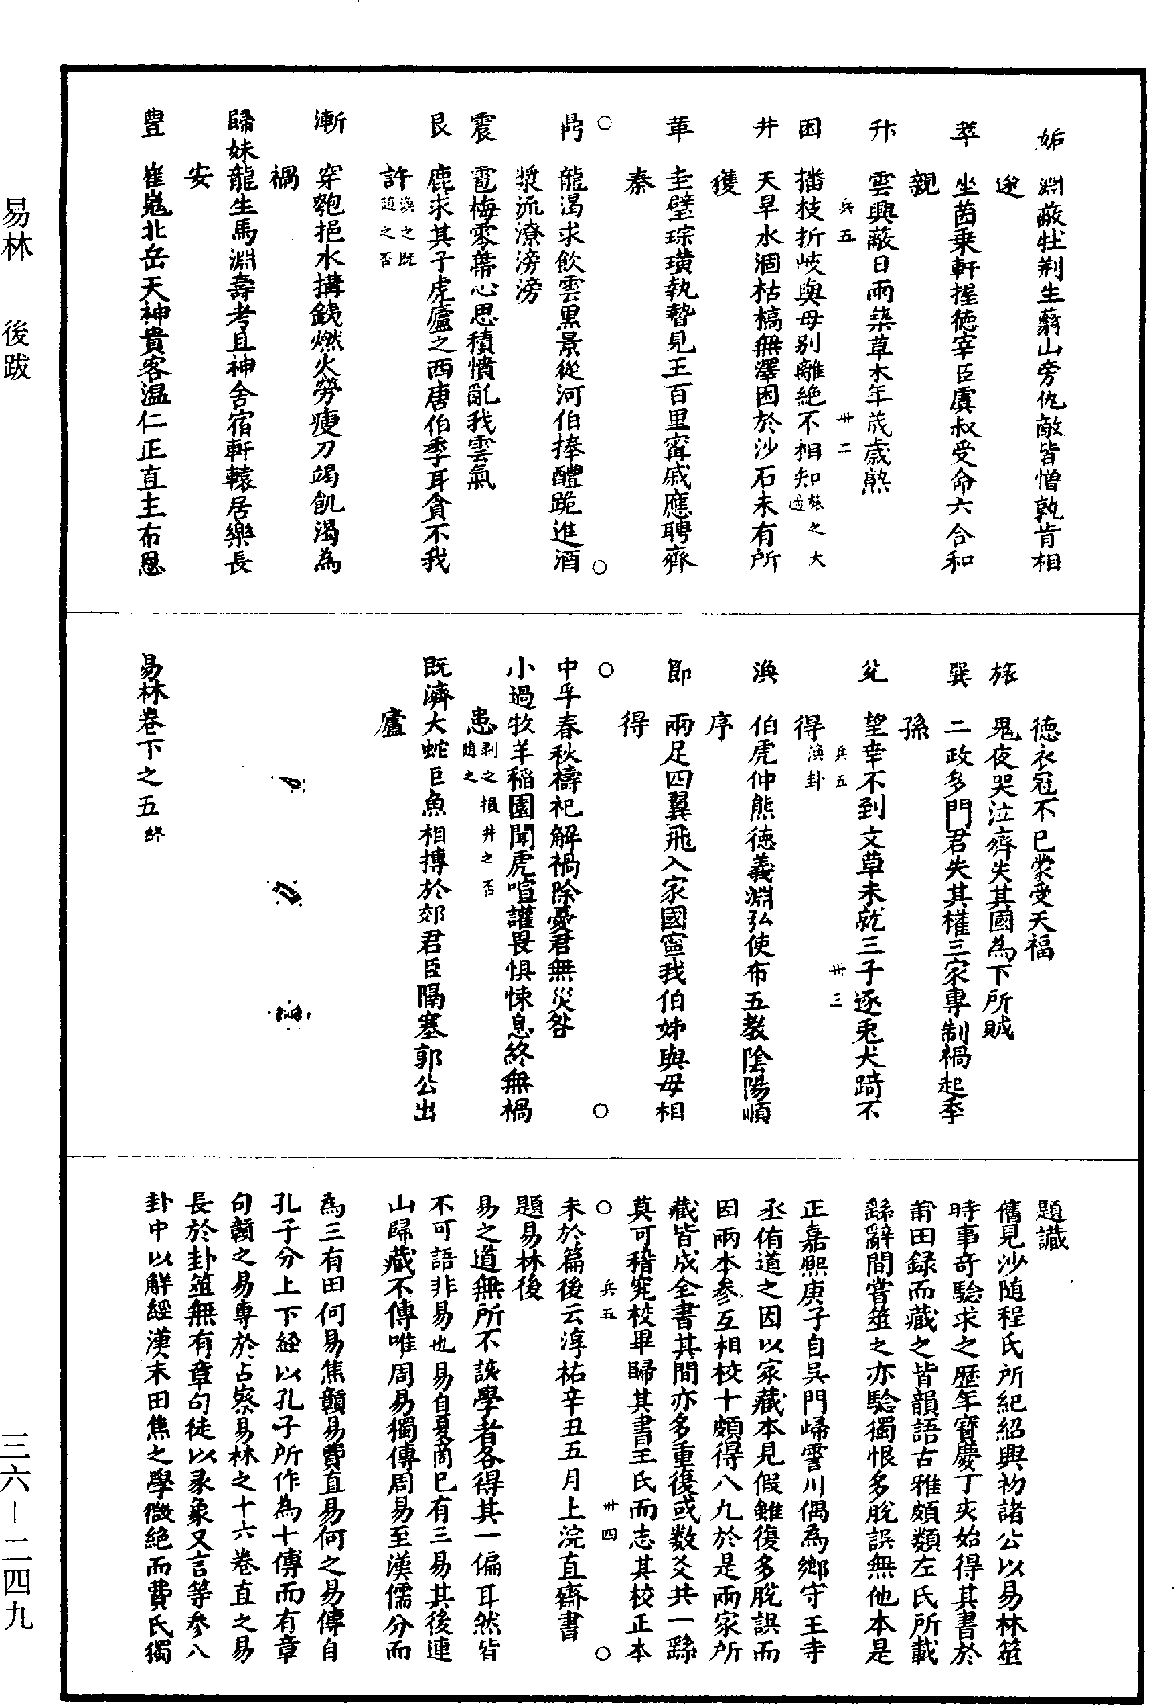 姤　淵蔽牡荊生蘙山旁仇敵皆憎孰肯相
途
萃　坐茵乗軒握徳宰臣虞叔受命六合和
親
升　雲興蔽日雨集草木年茂歳熟
兵五　卅二
困　播枝折岐與母别離絶不相知旅之大過
井　天旱水涸枯槁無澤困於沙石未有所
獲
革　圭璧琮璜執贄見王百里甯戚應聘齊
秦
○　○
鼎　龍渇求飲雲黒景從河伯捧醴跪進酒
漿流潦滂滂
震　雹梅零蔕心思積憒亂我雲氣
艮　鹿求其子虎廬之西唐伯季耳貪不我
許渙之既隨之否
漸　穿匏挹水搆鐵燃火勞瘦力竭飢渇為
禍
歸妹龍生馬淵壽考且神舍宿軒轅居樂長
安
豊　崔嵬北岳天神貴客温仁正直主布恩
德衣冠不已蒙受天福
旅　鬼夜哭泣齊失其國為下所賊
巽　二政多門君失其權三家専制禍起季
孫
兌　望幸不到文章未就三子逐兎犬踦不
得渙卦
兵五　卅三
渙　伯虎仲熊徳義淵弘使布五教陰陽順
序
節　兩足四翼飛入家國寧我伯姊與母相
得
○　○
中孚春秋禱祀解禍除憂君無災咎
小過牧羊稲園聞虎喧讙畏惧悚息終無禍
患剥之損井之否隨之
既濟大蛇巨魚相搏於郊君臣隔塞郭公出
廬
易林巻下之五終
題識
舊見沙随程氏所紀紹興初諸公以易林筮
時事奇驗求之歴年寶慶丁亥始得其書於
莆田録而藏之皆韻語古雅頗類左氏所載
繇辭間嘗筮之亦驗獨恨多脱誤無他本是
正嘉熙庚子自呉門歸霅川偶為郷守王寺
丞侑道之因以家藏本見假雖復多脱誤而
因兩本参互相校十頗得八九於是兩家所
藏皆成全書其間亦多重復或数爻共一繇
莫可稽究校畢歸其書王氏而志其校正本
○　兵五　卅四　○
末於篇後云淳祐辛丑五月上浣直齋書
題易林後
易之道無所不該學者各得其一偏耳然皆
不可語非易也易自夏商已有三易其後連
山歸藏不傳唯周易獨傳周易至漢儒分而
為三有田何易焦贛易費直易何之易傳自
孔子分上下經以孔子所作為十傳而有章
句贛之易專於占察易林之十六巻直之易
長於卦筮無有章句徒以彖象文言等参入
卦中以觧經漢末田焦之學微絶而費氏獨
易林　後跋
三六—二四九